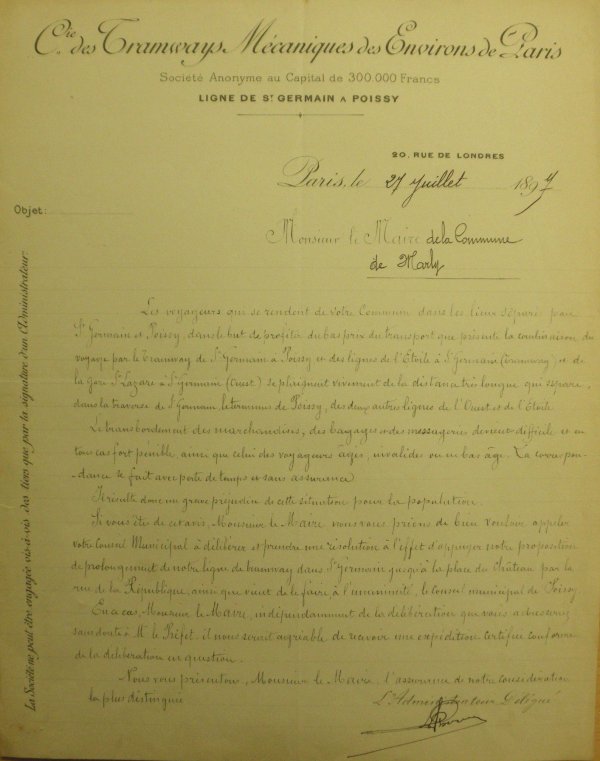 Cie des Tramways Mécaniques des Environs de Paris
Société Anonyme au Capital de 300.000 Francs
LIGNE DE ST GERMAIN A POISSY
20, RUE DE LONDRES
Paris, le 27 Juillet 1897
Objet:
Monsieur le Maire de la Commune
de Marly
Les voyageurs qui se rendent de votre Commune dans les lieux séparé par
St Germain et Poissy, dans le but de profiter du bas prix du transport que présente la combinaison du
voyage par le Tramway de St Germain à Poissy et des lignes de l'Etoile à St Germain (Tramway) et de
la Gare St Lazare à St Germain (Ouest) se plaignent vivement de la distance très longue qui sépare,
dans la traverse de St Germain, le terminus de Poissy, des deux autres lignes de l'Ouest et de l'Etoile.
Le transbordement des marchandises, des bagages et des messageries devient difficile et en
tous cas fort pénible, ainsi que celui des voyageurs agés, invalides ou en bas âge. La corres-pon-
-dance se fait avec perte de temps et sans assurance.
Il résulte donc un grave préjudice de cette situation pour la population.
Si vous êtes de cet avis, Monsieur le Maire, nous vous prions de bien vouloir appeler
votre Conseil Municipal à délibérer et prendre une résolution à l'effet d'appuyer notre proposition
de prolongement de notre ligne de tramway dans St Germain jusqu'à la place du Château par la
rue de la République, ainsi que vient de le faire à l'unanimité, le Conseil municipal de Poissy.
En ce cas, Monsieur le Maire, indépendamment de la délibération que vous adresserez
sans doute à Mr le Préfet, il nous serait agréable de recevoir une expédition certifiée conforme
de la délibération en question.
Nous vous présentons, Monsieur le Maire, l'assurance de notre considération
la plus distinguée
L'Administrateur Délégué
La Société ne peut être engagée vis-à-vis des tiers que par la signature d'un Administrateur.